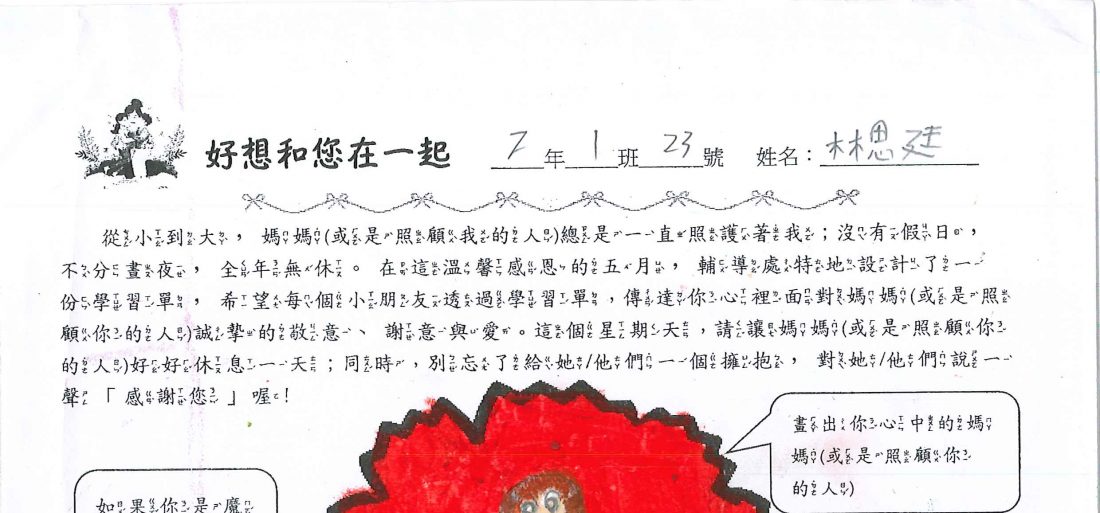 好想和您在一起 2年1班23號 姓名：林思廷
從小到大，媽媽(或是照顧我的人)總是一直照護著我；沒有假日，
不分晝夜，全年無休。在這溫馨感恩的五月，輔導處特地設計了一
份學習單，希望每個小朋友透過學習單，傳達你心裡面對媽媽(或是照
顧你的人)誠摯的敬意、謝意與愛。這個星期天，請讓媽媽(或是照顧你
的人)好好休息一天；同時，別忘了給她/他們一個擁抱，對她/他們說一
聲「感謝您」喔！
畫出你心中的媽
媽(或是照顧你
的人)
如果你是魔